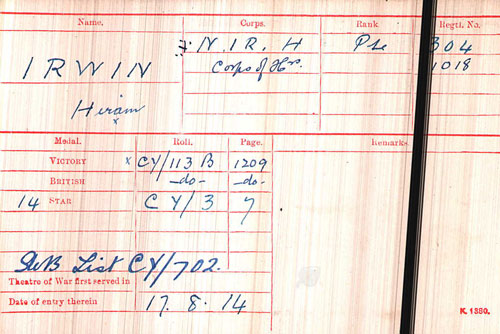 Name. Corps. Rank Regtl. No.
N. I R. H Pte 304
IRWIN Corps of Hrs. 1018
Hiram
x
Medal. Roll. Page. Remarks
VICTORY x CY/113 B 1209
BRITISH -do- -do-
14 STAR CY/3 7
List CY/702.
Theatre of War first served in
Date of entry therein 17. 8. 14
K. 1380.